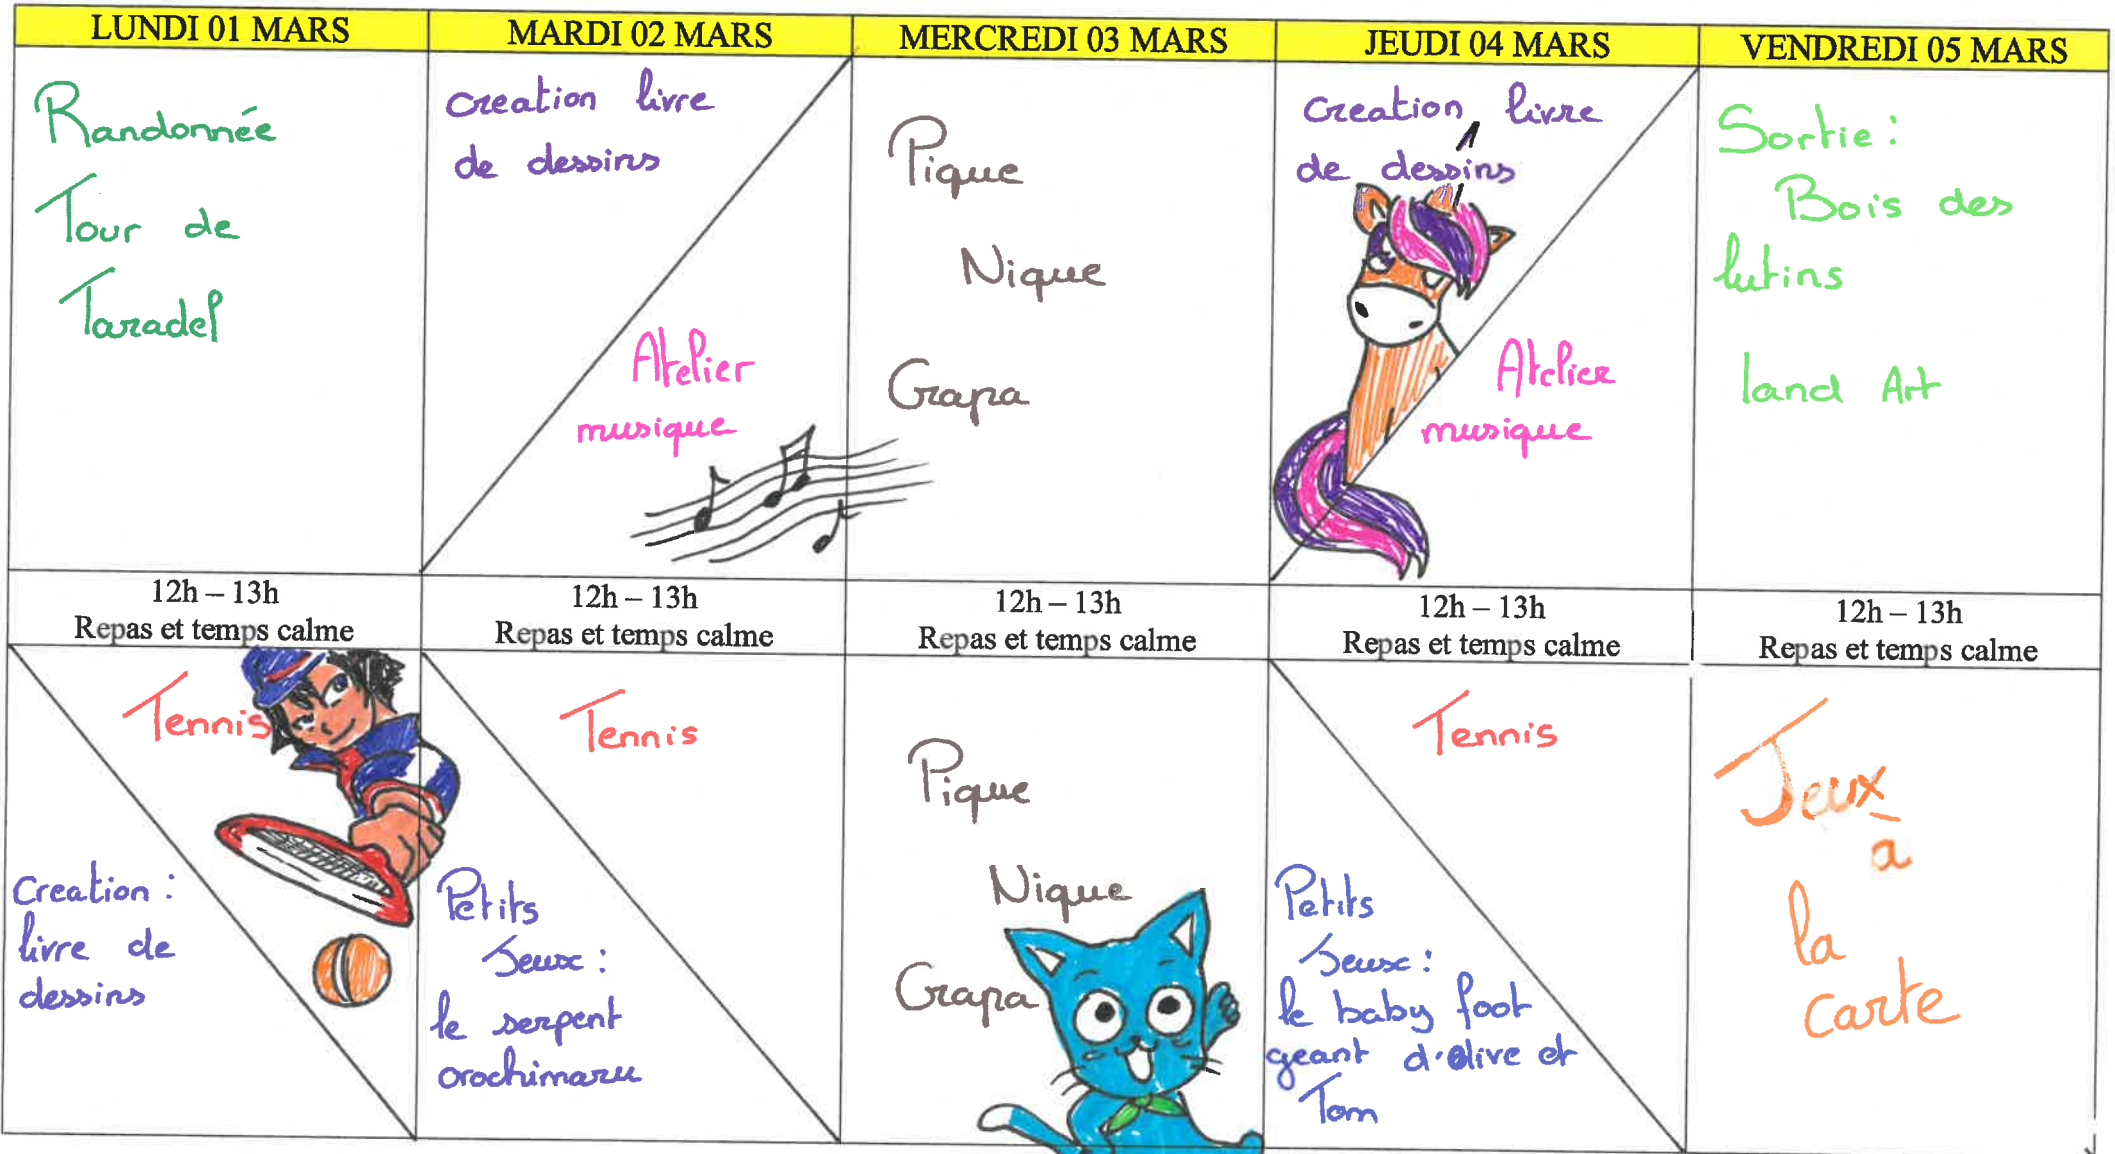 LUNDI 01 MARS
MARDI 02 MARS
MERCREDI 03 MARS
JEUDI 04 MARS
VENDREDI 05 MARS
Randonnée
Tour de
Taradel
creation livre
de dessins
Atelier
musique
Pique
Nique
Grapa
creation livre
de dessins
Atelier
musique
Sortie :
Bois des
lutins
land Art
12h – 13h
Repas et temps calme
12h – 13h
Repas et temps calme
12h – 13h
Repas et temps calme
12h – 13h
Repas et temps calme
12h – 13h
Repas et temps calme
Tennis
Creation :
livre de
dessins
Tennis
Petits
Jeux :
le serpent
orochimaru
Pique
Nique
Grapa
Tennis
Petits
Jeux :
le baby foot
geant d'olive et
Tom
Jeux
a
la
carte